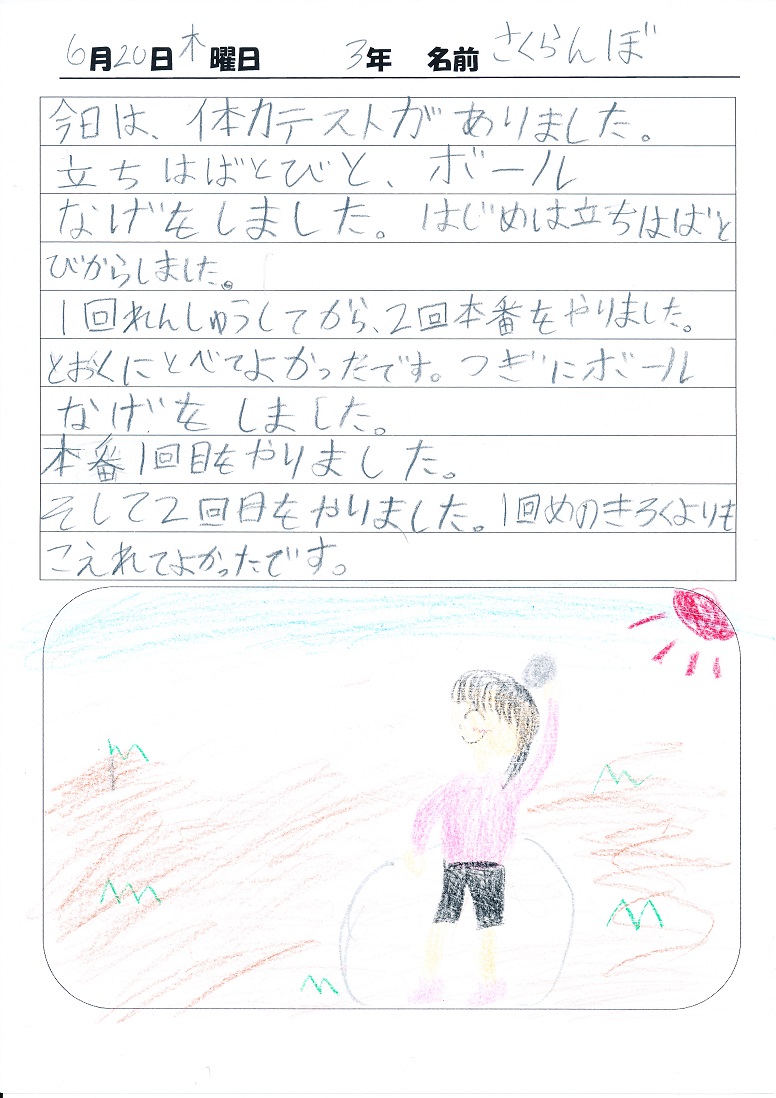 6月20日木曜日 3年 名前 さくらんぼ
今日は、体力テストがありました。
立ちはばとびと、ボール
なげをしました。はじめは立ちはばと
びからしました。
1回れんしゅうしてから、2回本番をやりました。
とおくにとべてよかったです。つぎにボール
なげをしました。
本番1回目をやりました。
そして2回目をやりました。1回めのきろくよりも
こえれてよかったです。